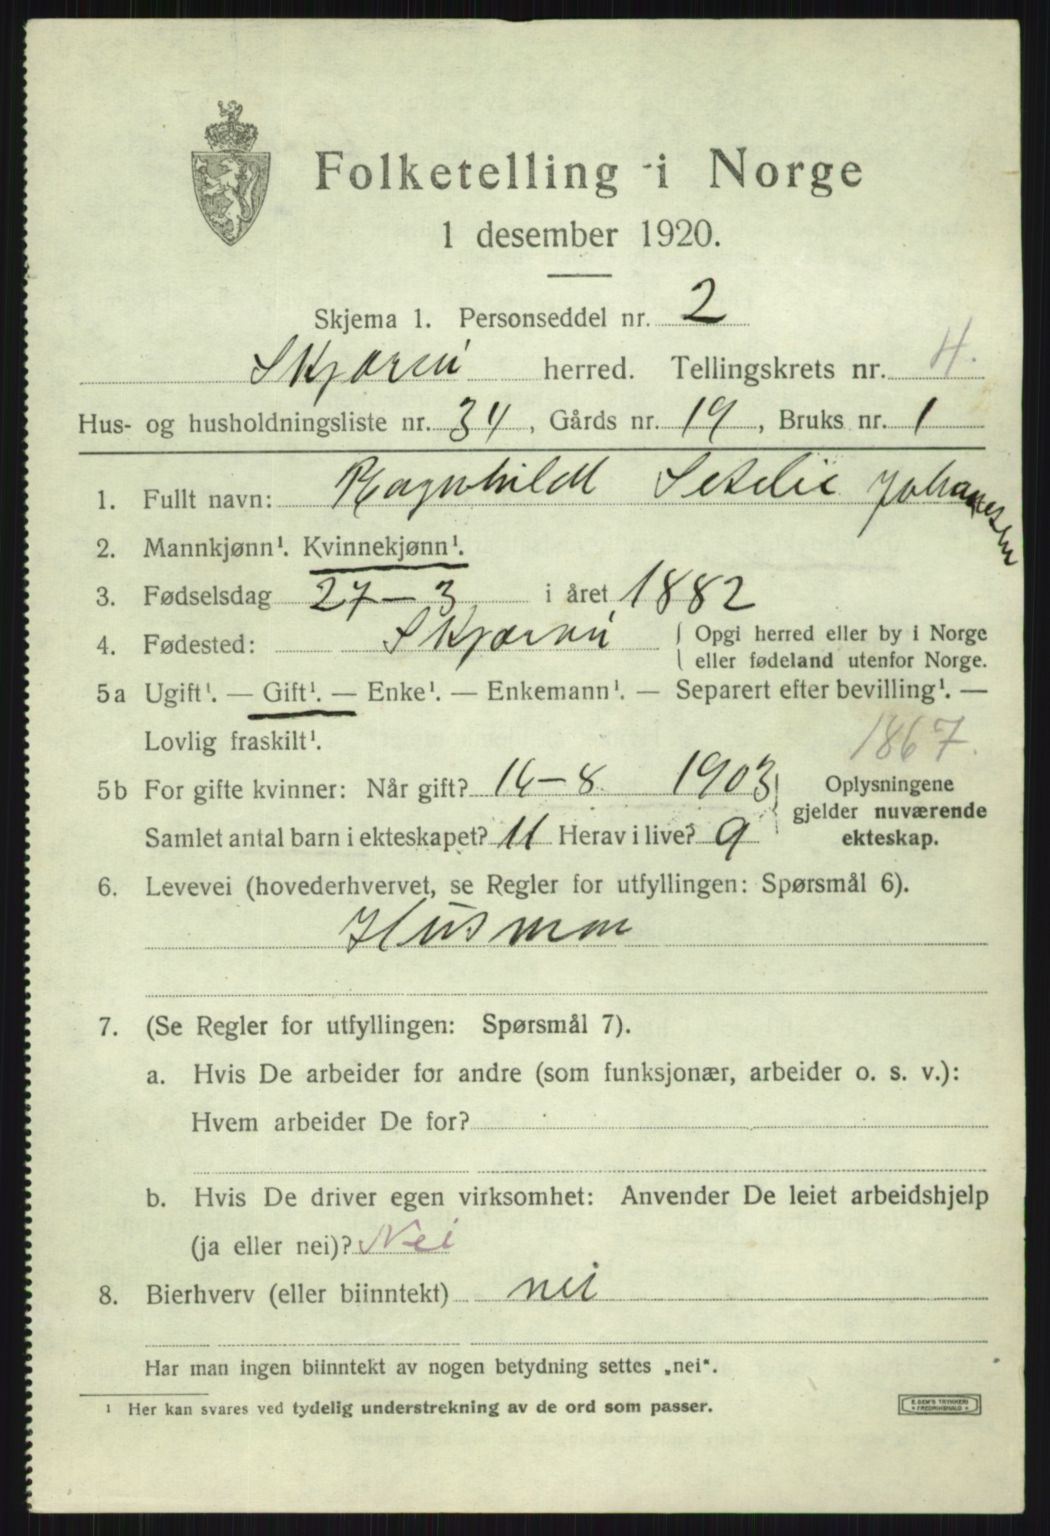 Folketelling i Norge
1 desember 1920.
Skjema 1. Personseddel nr. 2
herred. Tellingskrets nr. 4.
Hus- og husholdningsliste nr. 34, Gårds nr. 19, Bruks nr. 1
1. Fullt navn: Ragnhildt Johannesen
2. Mannkjønn¹. Kvinnekjønn¹.
3. Fødselsdag 27-3 i året 1882
4. Fødested: { Opgi herred eller by i Norge
eller fødeland utenfor Norge.
5a Ugift¹. — Gift¹. — Enke¹. — Enkemann¹. — Separert efter bevilling¹. —
Lovlig fraskilt¹. 1867.
5b For gifte kvinner: Når gift? 14-8 1903 } Oplysningene
gjelder nuværende
Samlet antal barn i ekteskapet? 11 Herav i live? 9 ekteskap.
6. Levevei (hovederhvervet, se Regler for utfyllingen: Spørsmål 6).
Husmor
7. (Se Regler for utfyllingen: Spørsmål 7).
a. Hvis De arbeider for andre (som funksjonær, arbeider o. s. v.):
Hvem arbeider De for?
b. Hvis De driver egen virksomhet: Anvender De leiet arbeidshjelp
(ja eller nei)? Nei
8. Bierhverv (eller biinntekt) nei
Har man ingen biinntekt av nogen betydning settes „nei".
¹ Her kan svares ved tydelig understrekning av de ord som passer.
E. SEM'S TRYKKERI
FREDRIKSHALD